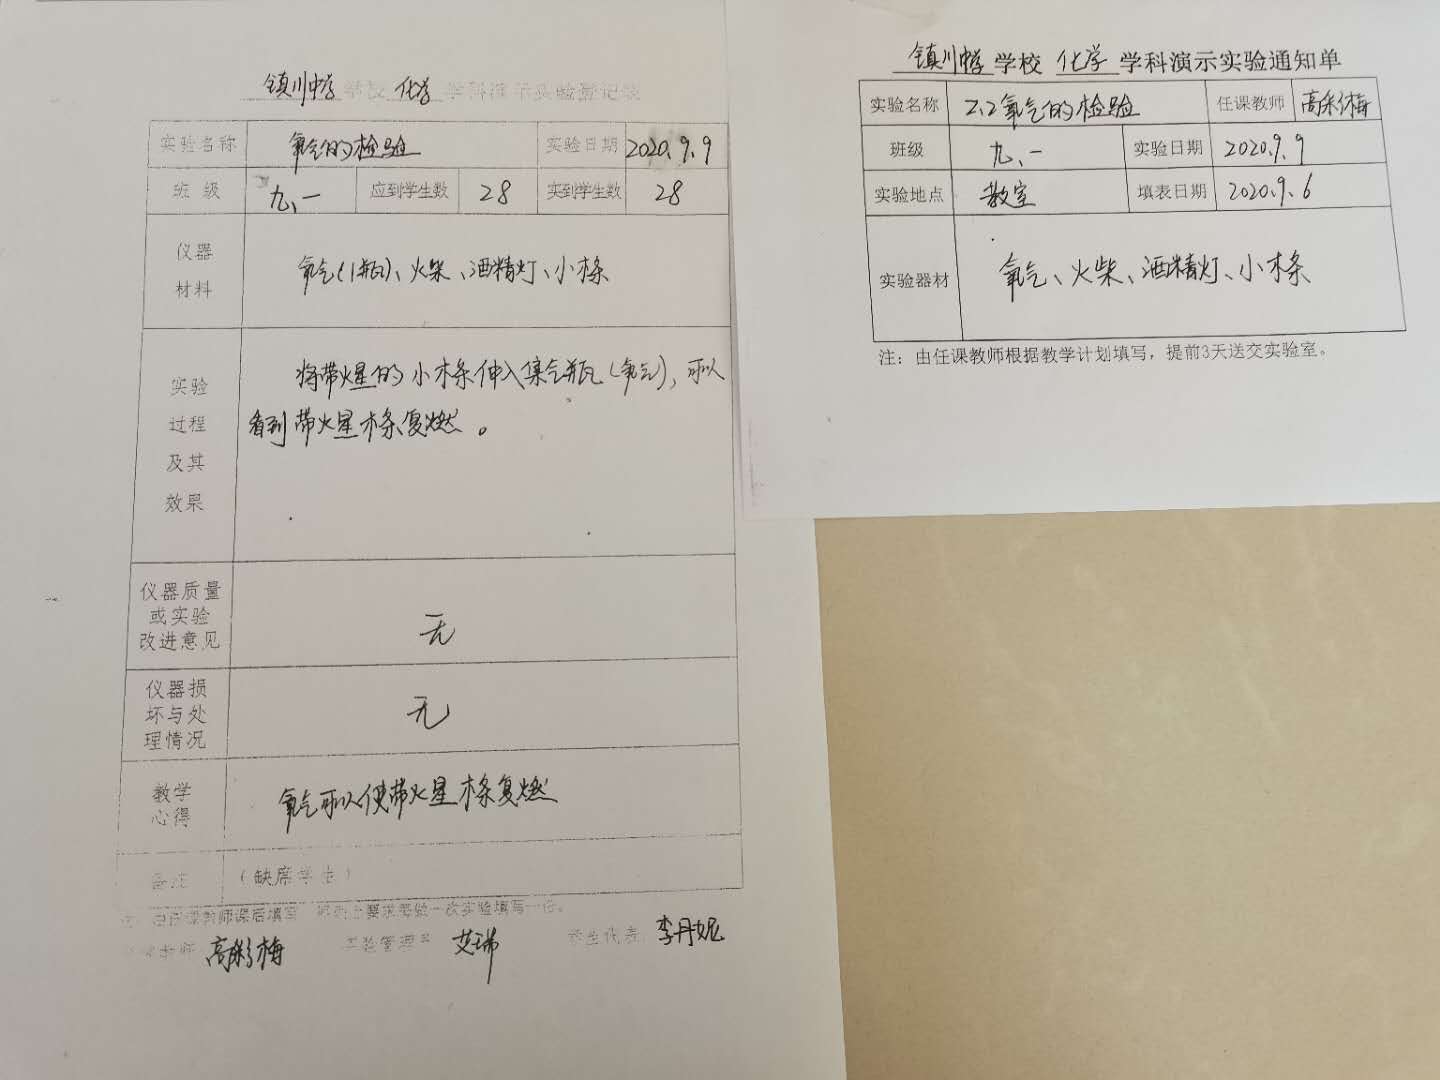 镇川中学 学校 化学 学科演示实验登记表
实验名称 氧气的检验 实验日期 2020.9.9
班 级 九、一 应到学生数 28 实到学生数 28
仪器
材料
氧气(1瓶)、火柴、酒精灯、小木条
实验
过程
及其
效果
将带火星的小木条伸入集气瓶(氧气),可以
看到带火星木条复燃。
仪器质量
或实验
改进意见
无
仪器损
坏与处
理情况
无
教学
心得
氧气可以使带火星木条复燃
备注 (缺席学生)
注:由任课教师课后填写,原则上要求每做一次实验填写一份。
任课教师 高彩梅 实验管理员 艾瑞 学生代表 李丹妮
镇川中学 学校 化学 学科演示实验通知单
实验名称 2.2氧气的检验 任课教师 高彩梅
班级 九、一 实验日期 2020.9.9
实验地点 教室 填表日期 2020.9.6
实验器材 氧气、火柴、酒精灯、小木条
注:由任课教师根据教学计划填写,提前3天送交实验室。